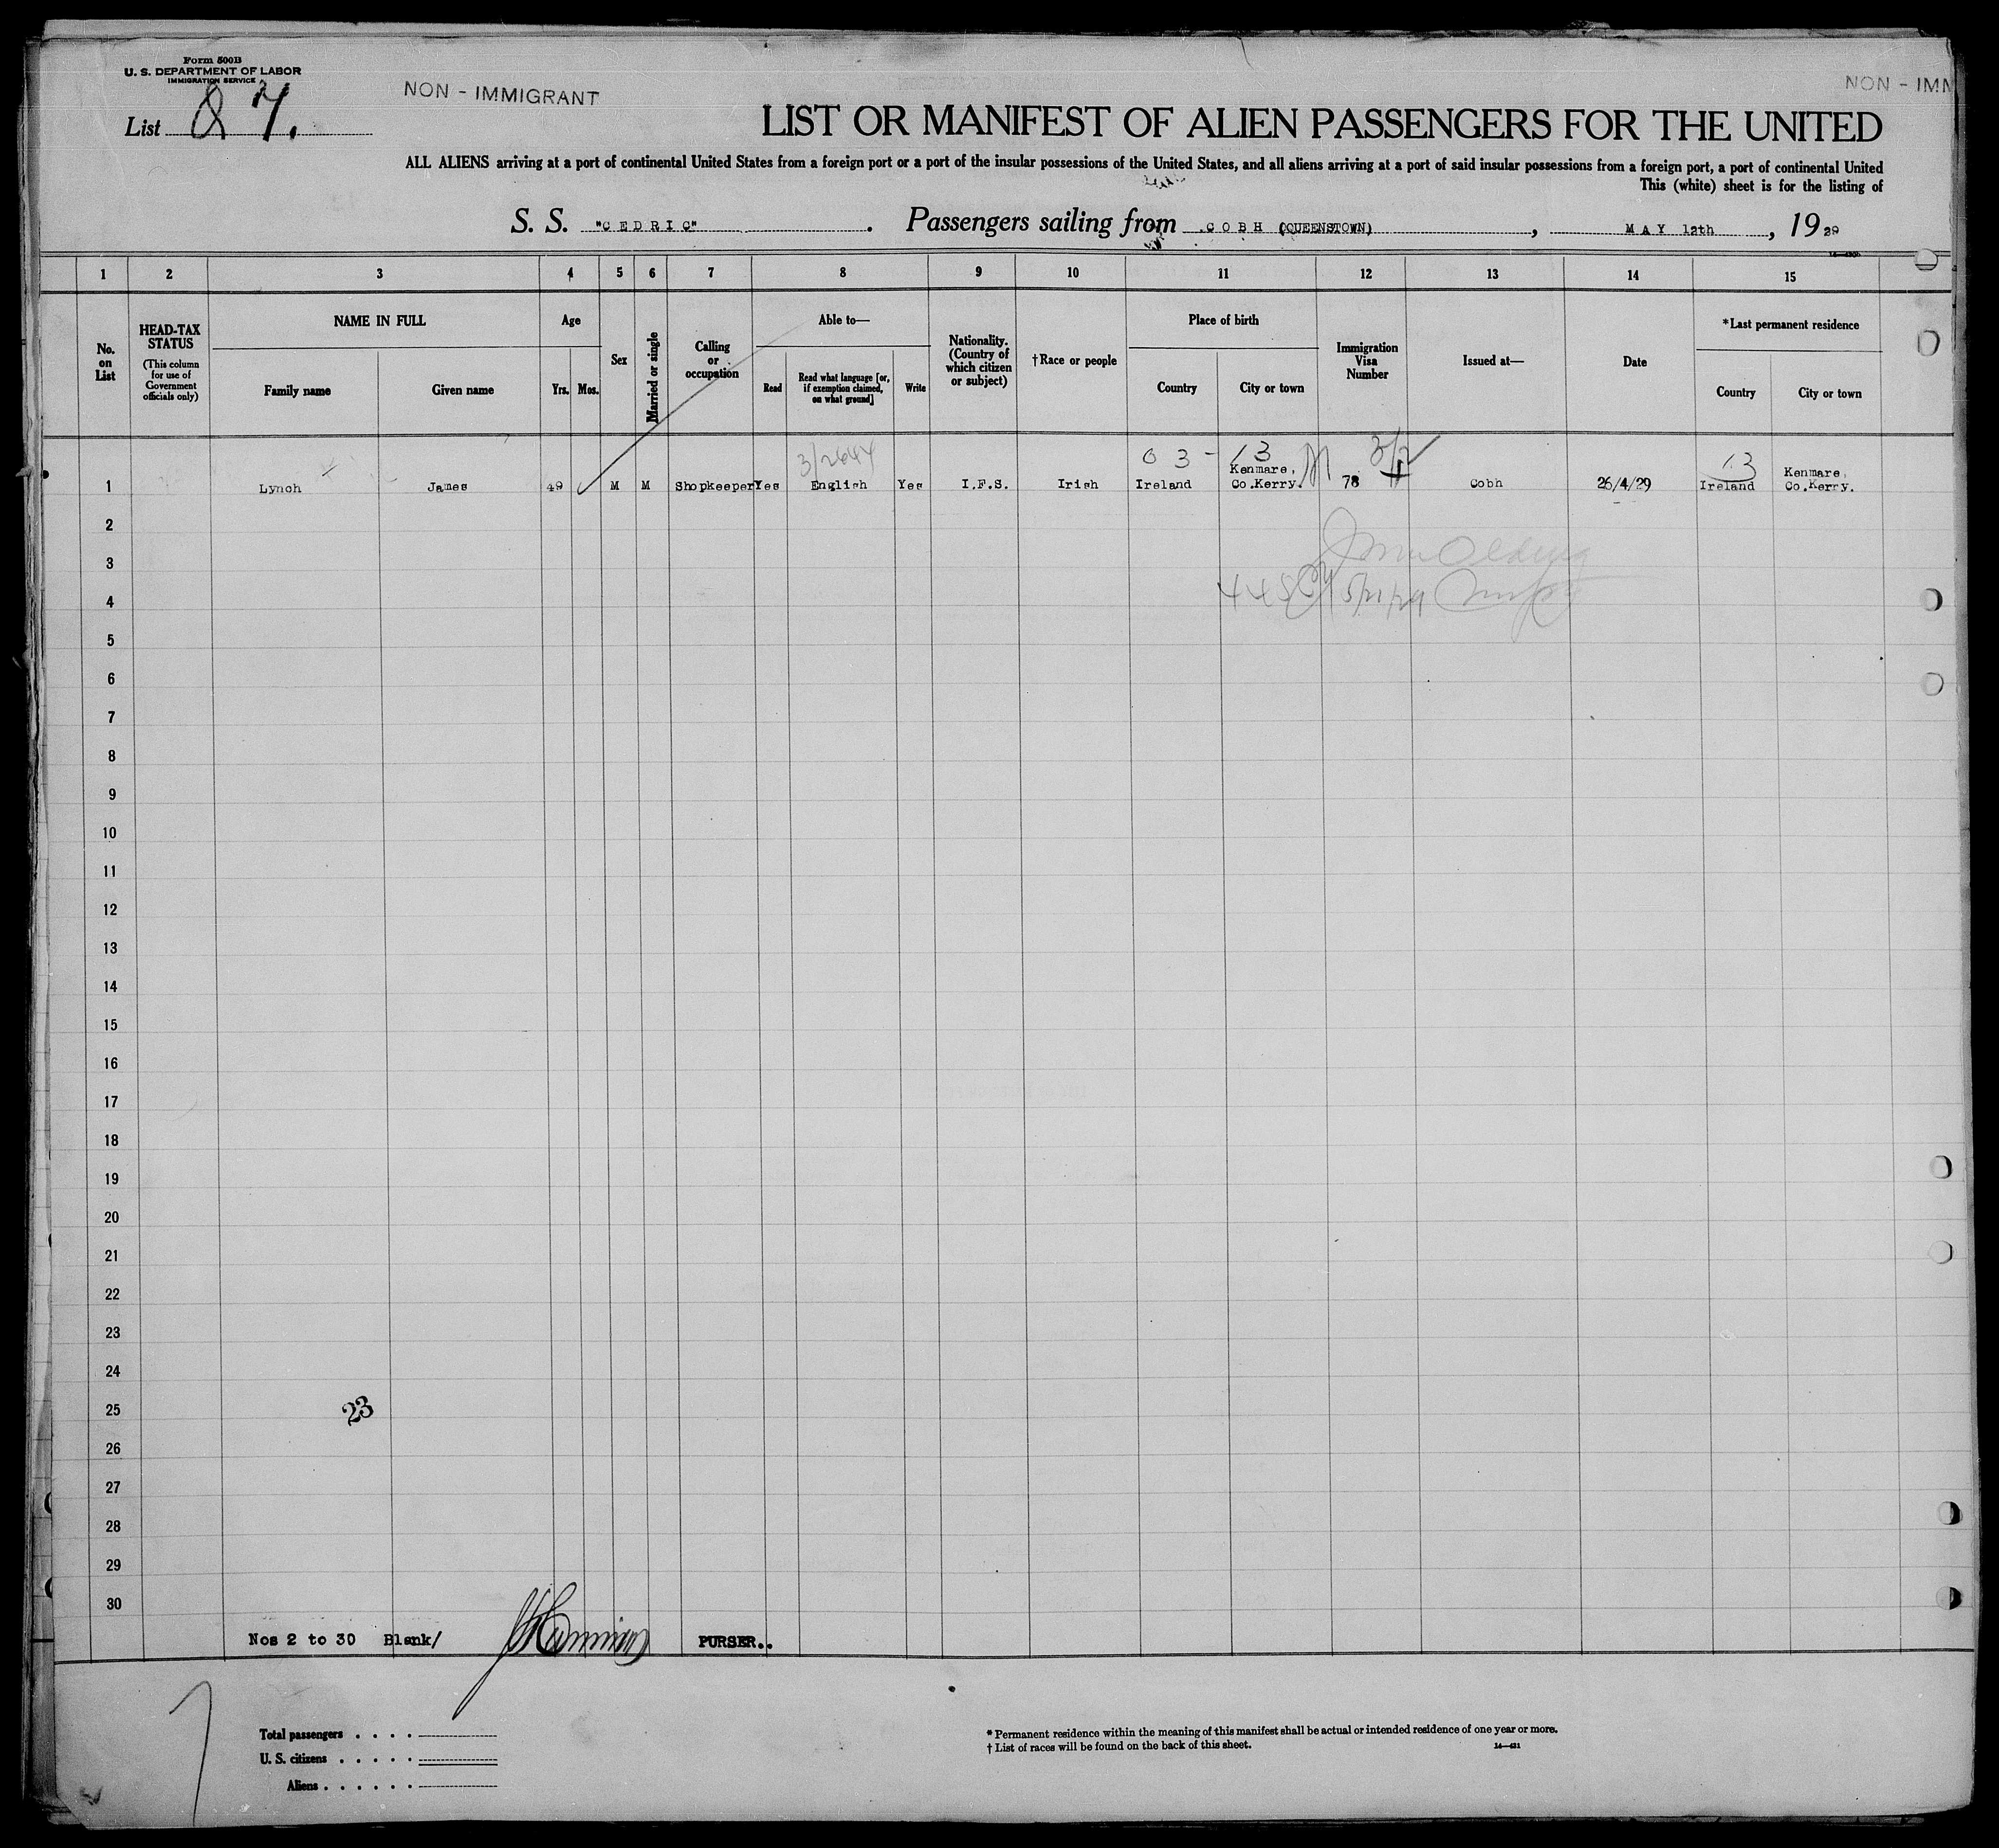 Form 500B
U. S. DEPARTMENT OF LABOR
IMMIGRATION SERVICE
List 87.
NON - IMMIGRANT
NON - IMM
LIST OR MANIFEST OF ALIEN PASSENGERS FOR THE UNITED
ALL ALIENS arriving at a port of continental United States from a foreign port or a port of the insular possessions of the United States, and all aliens arriving at a port of said insular possessions from a foreign port, a port of continental United
This (white) sheet is for the listing of
S. S. "CEDRIC". Passengers sailing from COBH (QUEENSTOWN), MAY 12th, 1929
1 2 3 4 5 6 7 8 9 10 11 12 13 14 15
No. on List
HEAD-TAX STATUS
(This column for use of Government officials only)
NAME IN FULL
Family name
Given name
Age
Yrs. Mos.
Sex
Married or single
Calling or occupation
Able to—
Read
Read what language [or, if exemption claimed, on what ground]
Write
Nationality. (Country of which citizen or subject)
†Race or people
Place of birth
Country
City or town
Immigration Visa Number
Issued at—
Date
*Last permanent residence
Country
City or town
03 - 13
13
1 Lynch James 49 M M Shopkeeper Yes English Yes I.F.S. Irish Ireland Kenmare, Co.Kerry. 78 Cobh 26/4/29 Ireland Kenmare, Co.Kerry.
2
3
4 5/21/29
5
6
7
8
9
10
11
12
13
14
15
16
17
18
19
20
21
22
23
24
25
23
26
27
28
29
30
Nos 2 to 30 Blank/ PURSER..
Total passengers . . . .
U. S. citizens . . . . .
Aliens . . . . . .
* Permanent residence within the meaning of this manifest shall be actual or intended residence of one year or more.
† List of races will be found on the back of this sheet.